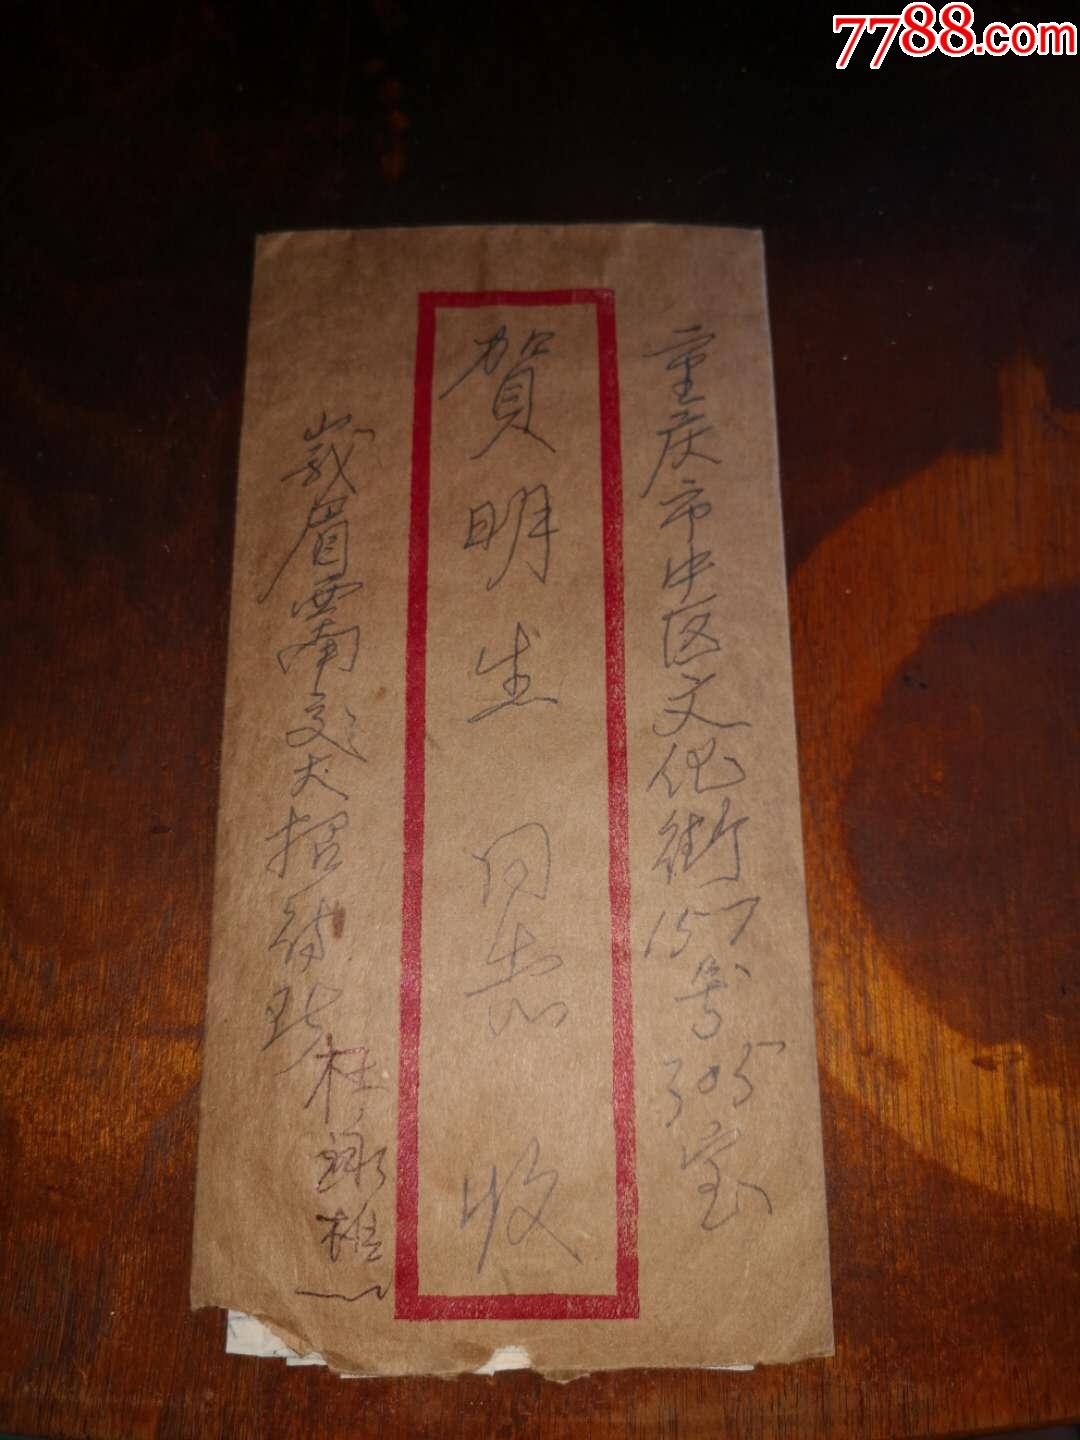 7788.com
重庆市中区文化街157号305室
賀明生 同志 收
峩眉西南交大招待所